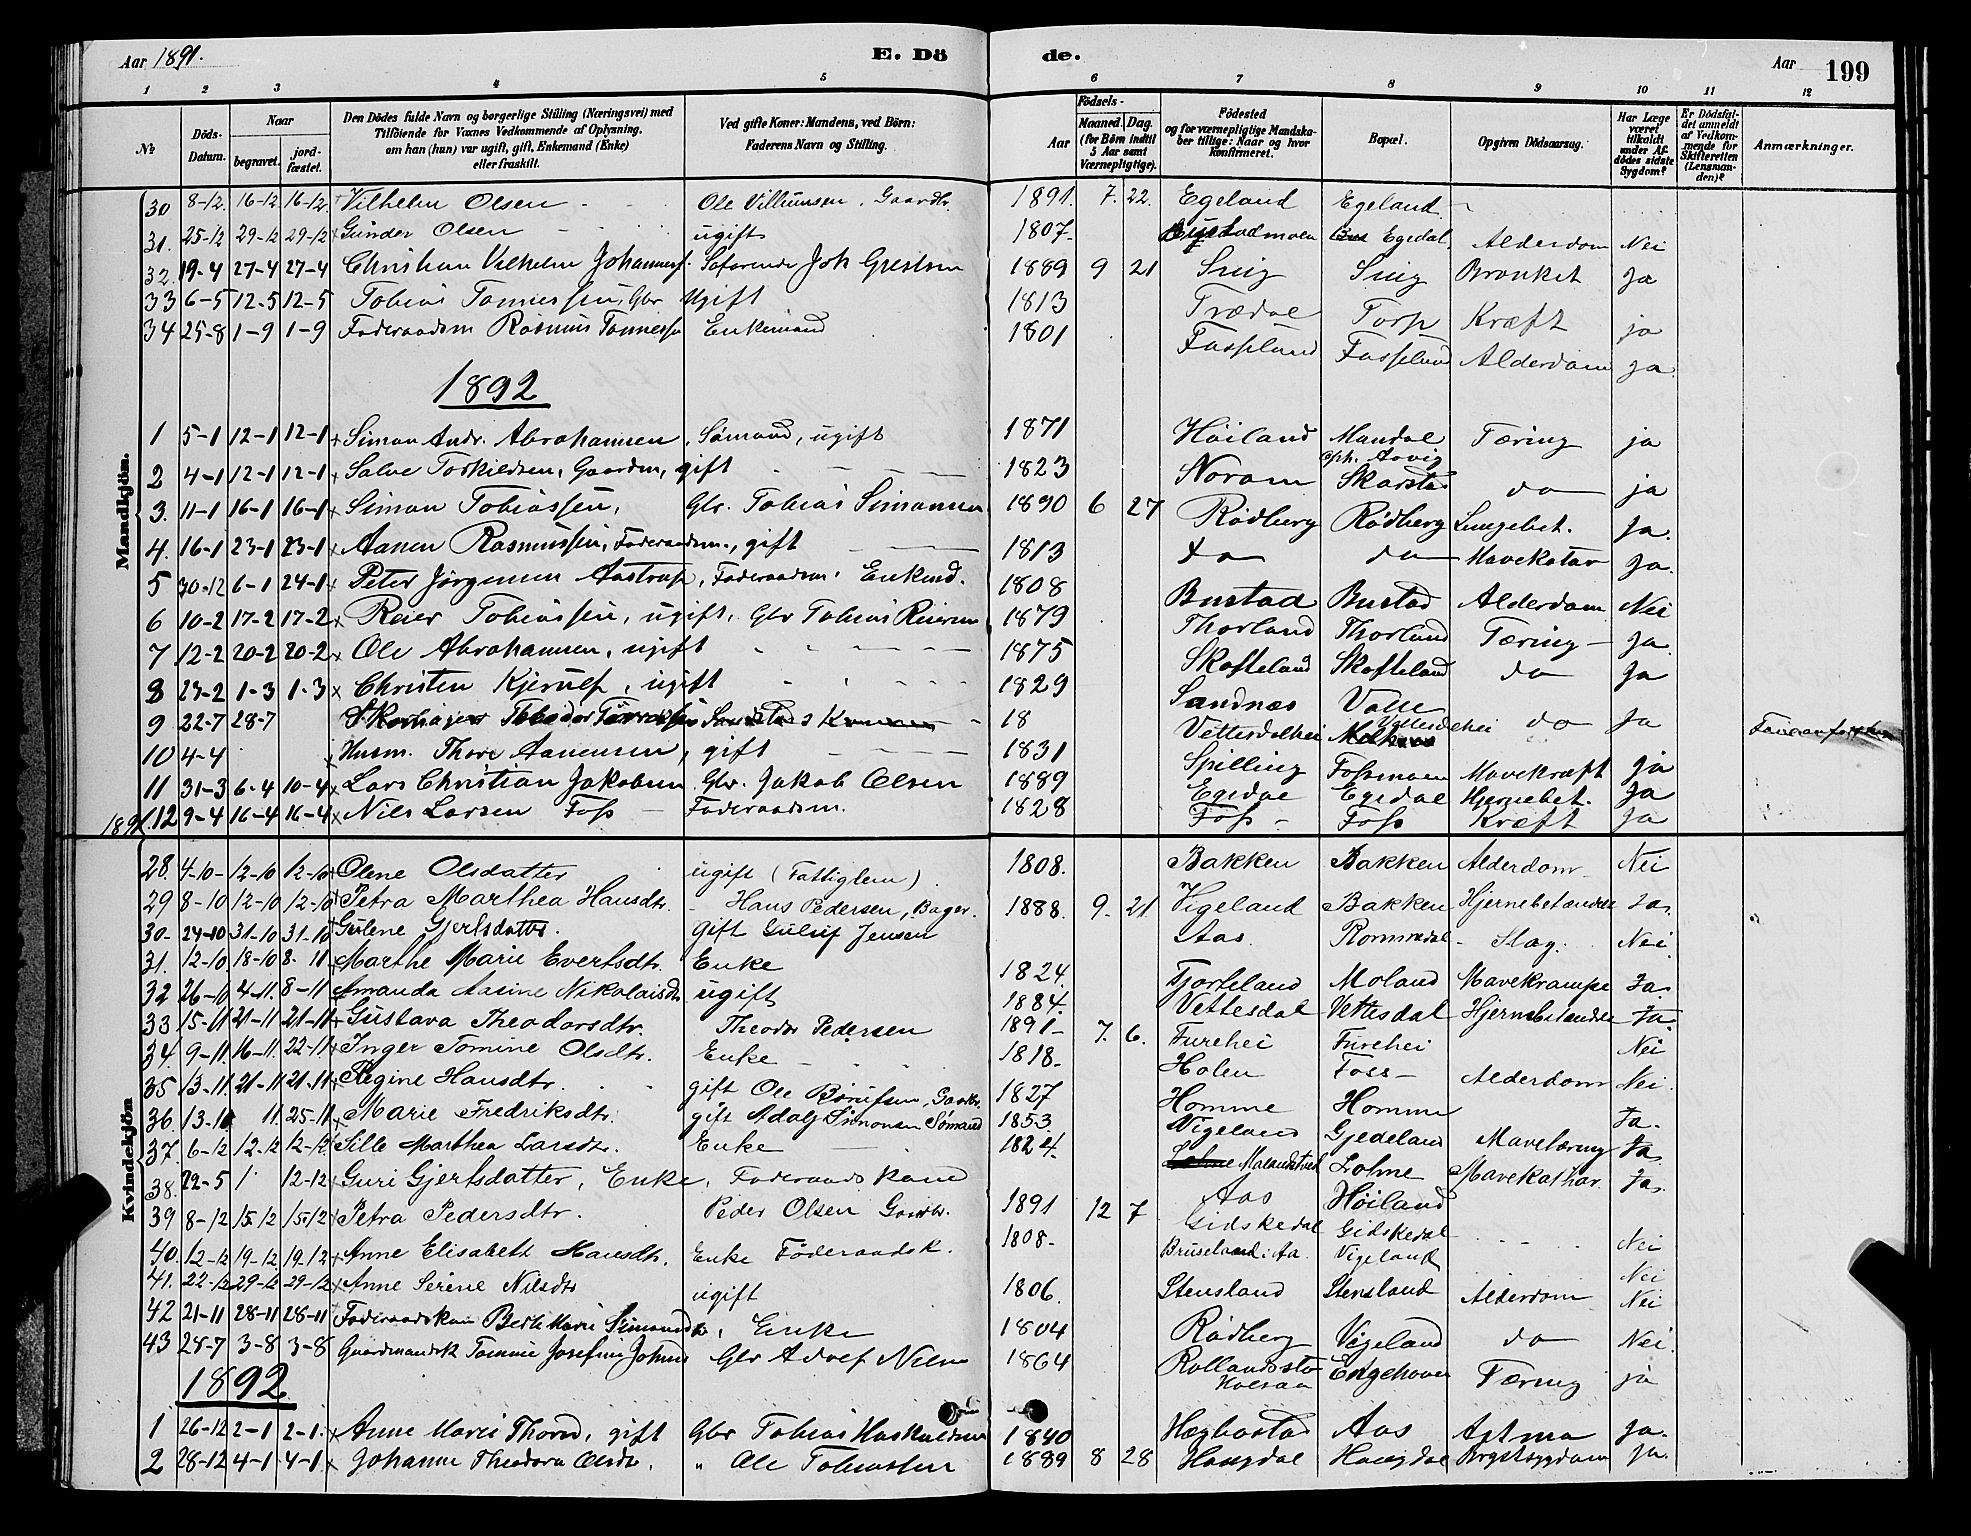 Aar 1891. E. Dö de. Aar 199
1 2 3 4 5 6 7 8 9 10 11 12
№ Döds-Datum. Naar begravet. jord-fæstet. Den Dödes fulde Navn og borgerlige Stilling (Næringsvei) med Tilföiende for Voxnes Vedkommende af Oplysning, om han (hun) var ugift, gift, Enkemand (Enke) eller fraskilt. Ved gifte Koner: Mandens, ved Börn: Faderens Navn og Stilling. Födsels- Aar Maaned. Dag. (for Börn indtil 5 Aar samt Værnepligtige). Födested og for værnepligtige Mandska-ber tillige: Naar og hvor konfirmeret. Bopæl. Opgiven Dödsaarsag. Har Læge været tilkaldt under Af-dödes sidste Sygdom? Er Dödsfal-det anmeldt af Vedkom-mende for Skifteretten (Lensman-den)? Anmærkninger.
Mandkjön.
30 8-12. 16-12 16-12. Vilhelm Olsen Ole Villumsen, Gaardbr. 1891. 7. 22. Egeland Egeland
31. 25-12 29-12 29-12 Gunder Olsen ugift 1807 Egedal, Alderdom Nei
32. 19-4 27-4 27-4 Christian Vilhelm Johannes. Søfarende Joh 1889 9 21 Snig Snig Bronket Ja
33 6-5 12-5 12-5 Tobias Tønnessen, Gbr Ugift 1813 Trædal Torp Kræft ja
34 25-8 1-9 1-9 Føderaadsm Rasmus Tønnessen Enkemand 1801 Fasseland Fasseland Alderdom Ja
1892
1 5-1 12-1 12-1 Simon Andr. Abrahamsen, Sømand, ugift 1871 Høiland Mandal oph. Aavig Tæring ja
2 4-1 12-1 12-1 Salve Torkildsen, Gaardm, gift 1823 Noram Skarstad do ja
3. 11-1 16-1 16-1 Simon Tobiassen, Gbr. Tobias Simonsen 1890 6 27 Rödberg Rödberg Lungebet. Ja
4. 16-1 23-1 23-1 Aanen Rasmussen, Føderaadsm., gift 1813 do do Mavekatar Ja.
5 30-12 6-1 24-1 Peter Jörgensen Aastrup, Føderaadsm. Enkmd. 1808 Bustad Bustad Alderdom Nei
6 10-2 17-2 17-2 Reier Tobiassen, ugift, Gbr Tobias Reiersen 1879 Thorland Thorland Tæring Ja
7 12-2 20-2 20-2 Ole Abrahamsen, ugift 1875 Skofteland Skofteland do Ja
8 23-2 1-3 1-3 Christen Kjerulf, ugift 1829 Sandnæs Valle
9 22-7 28-7 18 do Ja
10 4-4 Husm. Thore Aanensen, gift 1831 Vettesdalhei Vettesdalhei
11 31-3 6-4 10-4 Lars Christian Jakobsen Gbr. Jakob Olsen 1889 Spilling Fossmoen Mavekræft Ja
12 9-4 16-4 16-4 Nils Larsen Foss Føderaadsm. 1828 Egedal Egedal Hjernebet. Ja
Foss Foss Kræft Ja
Kvindekjön
1891.
28. 4-10 12-10 12-10 Olene Olsdatter ugift (Fattiglem) 1808. Bakken Bakken Alderdom Nei
29 8-10 12-10 12-10 Petra Marthea Hansdtr. Hans Pedersen, Bager. 1888. 9. 21 Vigeland Bakken Hjernebetændelse Ja.
30 24-10 31-10 31-10 Gulene Gjertsdatter. gift Guluf Jensen Aas Rommedal Slag. Nei
31. 12-10 18-10 8-11 Marthe Marie Evertsdtr. Enke 1824. Fjorteland Moland Mavekrampe Ja.
32 26-10 4-11. 8-11 Amanda Aasine Nikolaisdtr ugift 1884. Vettesdal Vettesdal Hjernebetændelse Ja.
33 15-11 21-11 21-11 Gustava Theodorsdtr. Theodor Pedersen 1891 7. 6. Furehei Furehei Nei
34. 9-11. 16-11. 22-11 Inger Tomine Olsdtr. Enke 1818 Holen Foss Alderdom Nei.
35 13-11. 21-11 21-11 Regine Hansdtr. gift Ole Börufsen, Gaardbr. 1827 Homme Homme Ja.
36 13-11 11. 25-11 Marie Fredriksdtr. gift Adolf Simonsen Sømand 1853 Vigeland Gjedeland Mavetæring Ja
37. 6-12 12.12 12-12. Sille Marthea Larsdtr. Enke 1824. Lohne Mavekathar. Ja.
38. 22-5 1 12-12 Guri Gjertsdatter, Enke, Føderaads kone Aas Höiland
39 8-12 15.12 15.12 Petra Pedersdtr. Peder Olsen Gaardbr. 1891 12 7 Gidskedal Gidskedal Nei
40. 12-12 19-12 19.12 Anne Elisabeth Hansdtr. Enke Föderaadsk. 1808 Bruseland i Aa. Vigeland Nei
41. 22-12 29-12 29-12 Anne Serine Nilsdtr ugift 1806. Stensland Stensland Alderdom Nei
42 21-11 28-11 28-11 Føderaadskone Berte Marie Simonsdtr, Enke 1804 Rödberg Vigeland do Nei.
43 24-7 3-8 3-8 Gaardmandsk Tomine Josefine Johnsd Gbr Adolf Nilsen 1864 Engehaven Tæring ja
1892
1 26-12 2-1 2-1. Anne Marie Thorsd, gift Gbr Tobias Haskuldsen 1840 Hægbostad Aas Astma Ja.
2 28-12 4-1 4-1 Johanne Theodora Olsdtr. " Ole Tobiassen 1889 8 28 Haugdal Haugdal Brystsygdom Ja.